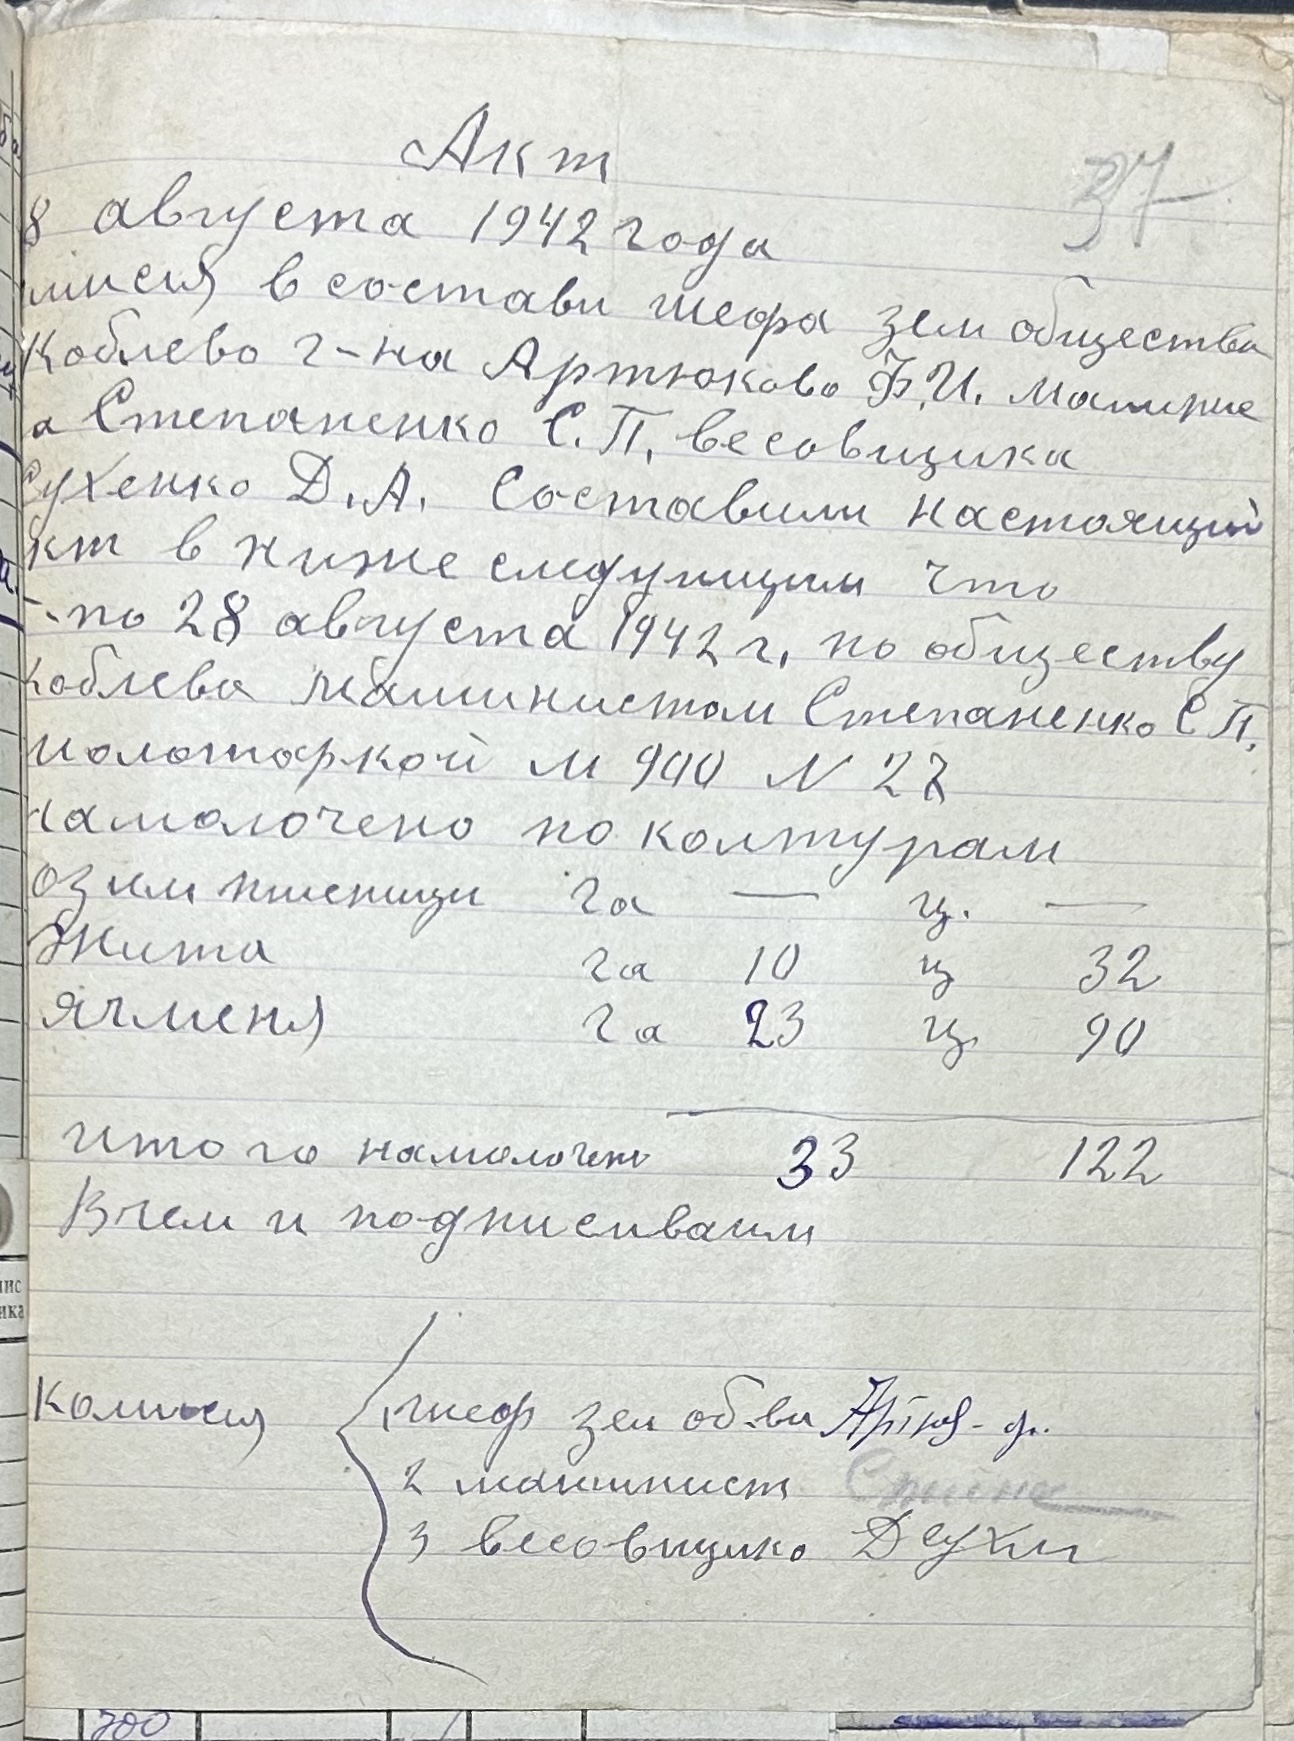 Акт
37
8 августа 1942 года
мисия в состави шефа зем общества
Коблево г-на Артюково Ф.И. машине
а Степаненко С.П. весовщика
Сухенко Д.А. Составили настоящий
кт в ниже следующим что
-по 28 августа 1942 г. по обществу
Коблева машинистом Степаненко С П.
молотаркой М 900 N 22
намолочено по култ урам
озим пшеници га — ц. —
Жита га 10 ц 32
Ячменя га 23 ц. 90
итого намолочено 33 122
В чем и подписиваим
Комисия
1 шеф зем об-ва
2 машинист
3 весовщико Д Сухи
пис
ика
300